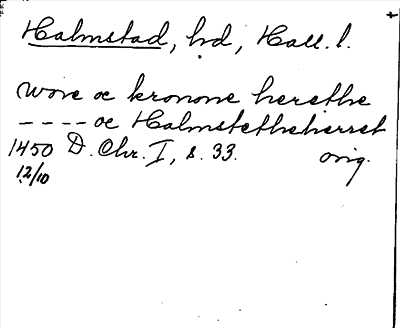 Halmstad, hd, Hall. l.
wore oc kronone herethe
---- oc Halmstetheherret
1450 D. Chr. I, s. 33. orig.
12/10